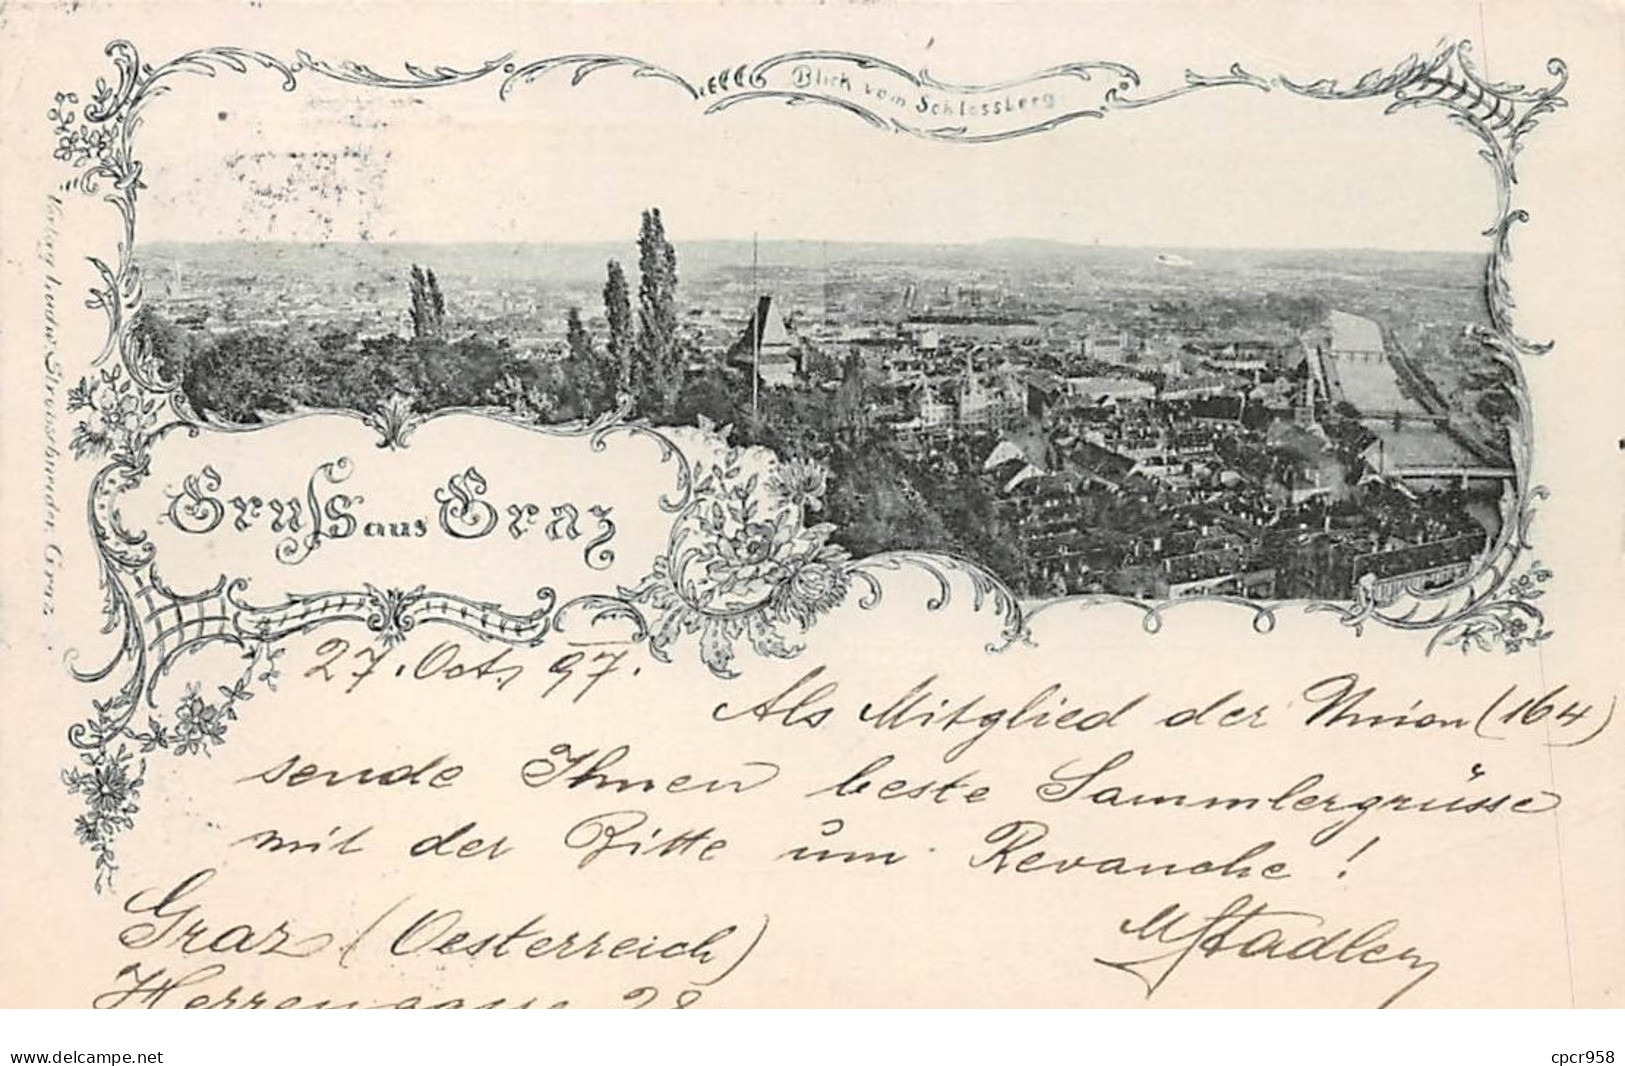 Blick vom Schlossberg
Verlag Ludw. Strohschneider, Graz
Gruss aus Graz
27. Oct. 97.
Als Mitglied der Union (164)
sende Ihnen beste Sammlergrüsse
mit der Bitte um Revanche!
MStadler
Graz (Oesterreich)
Herrengasse 28
www.delcampe.net
cpcr958